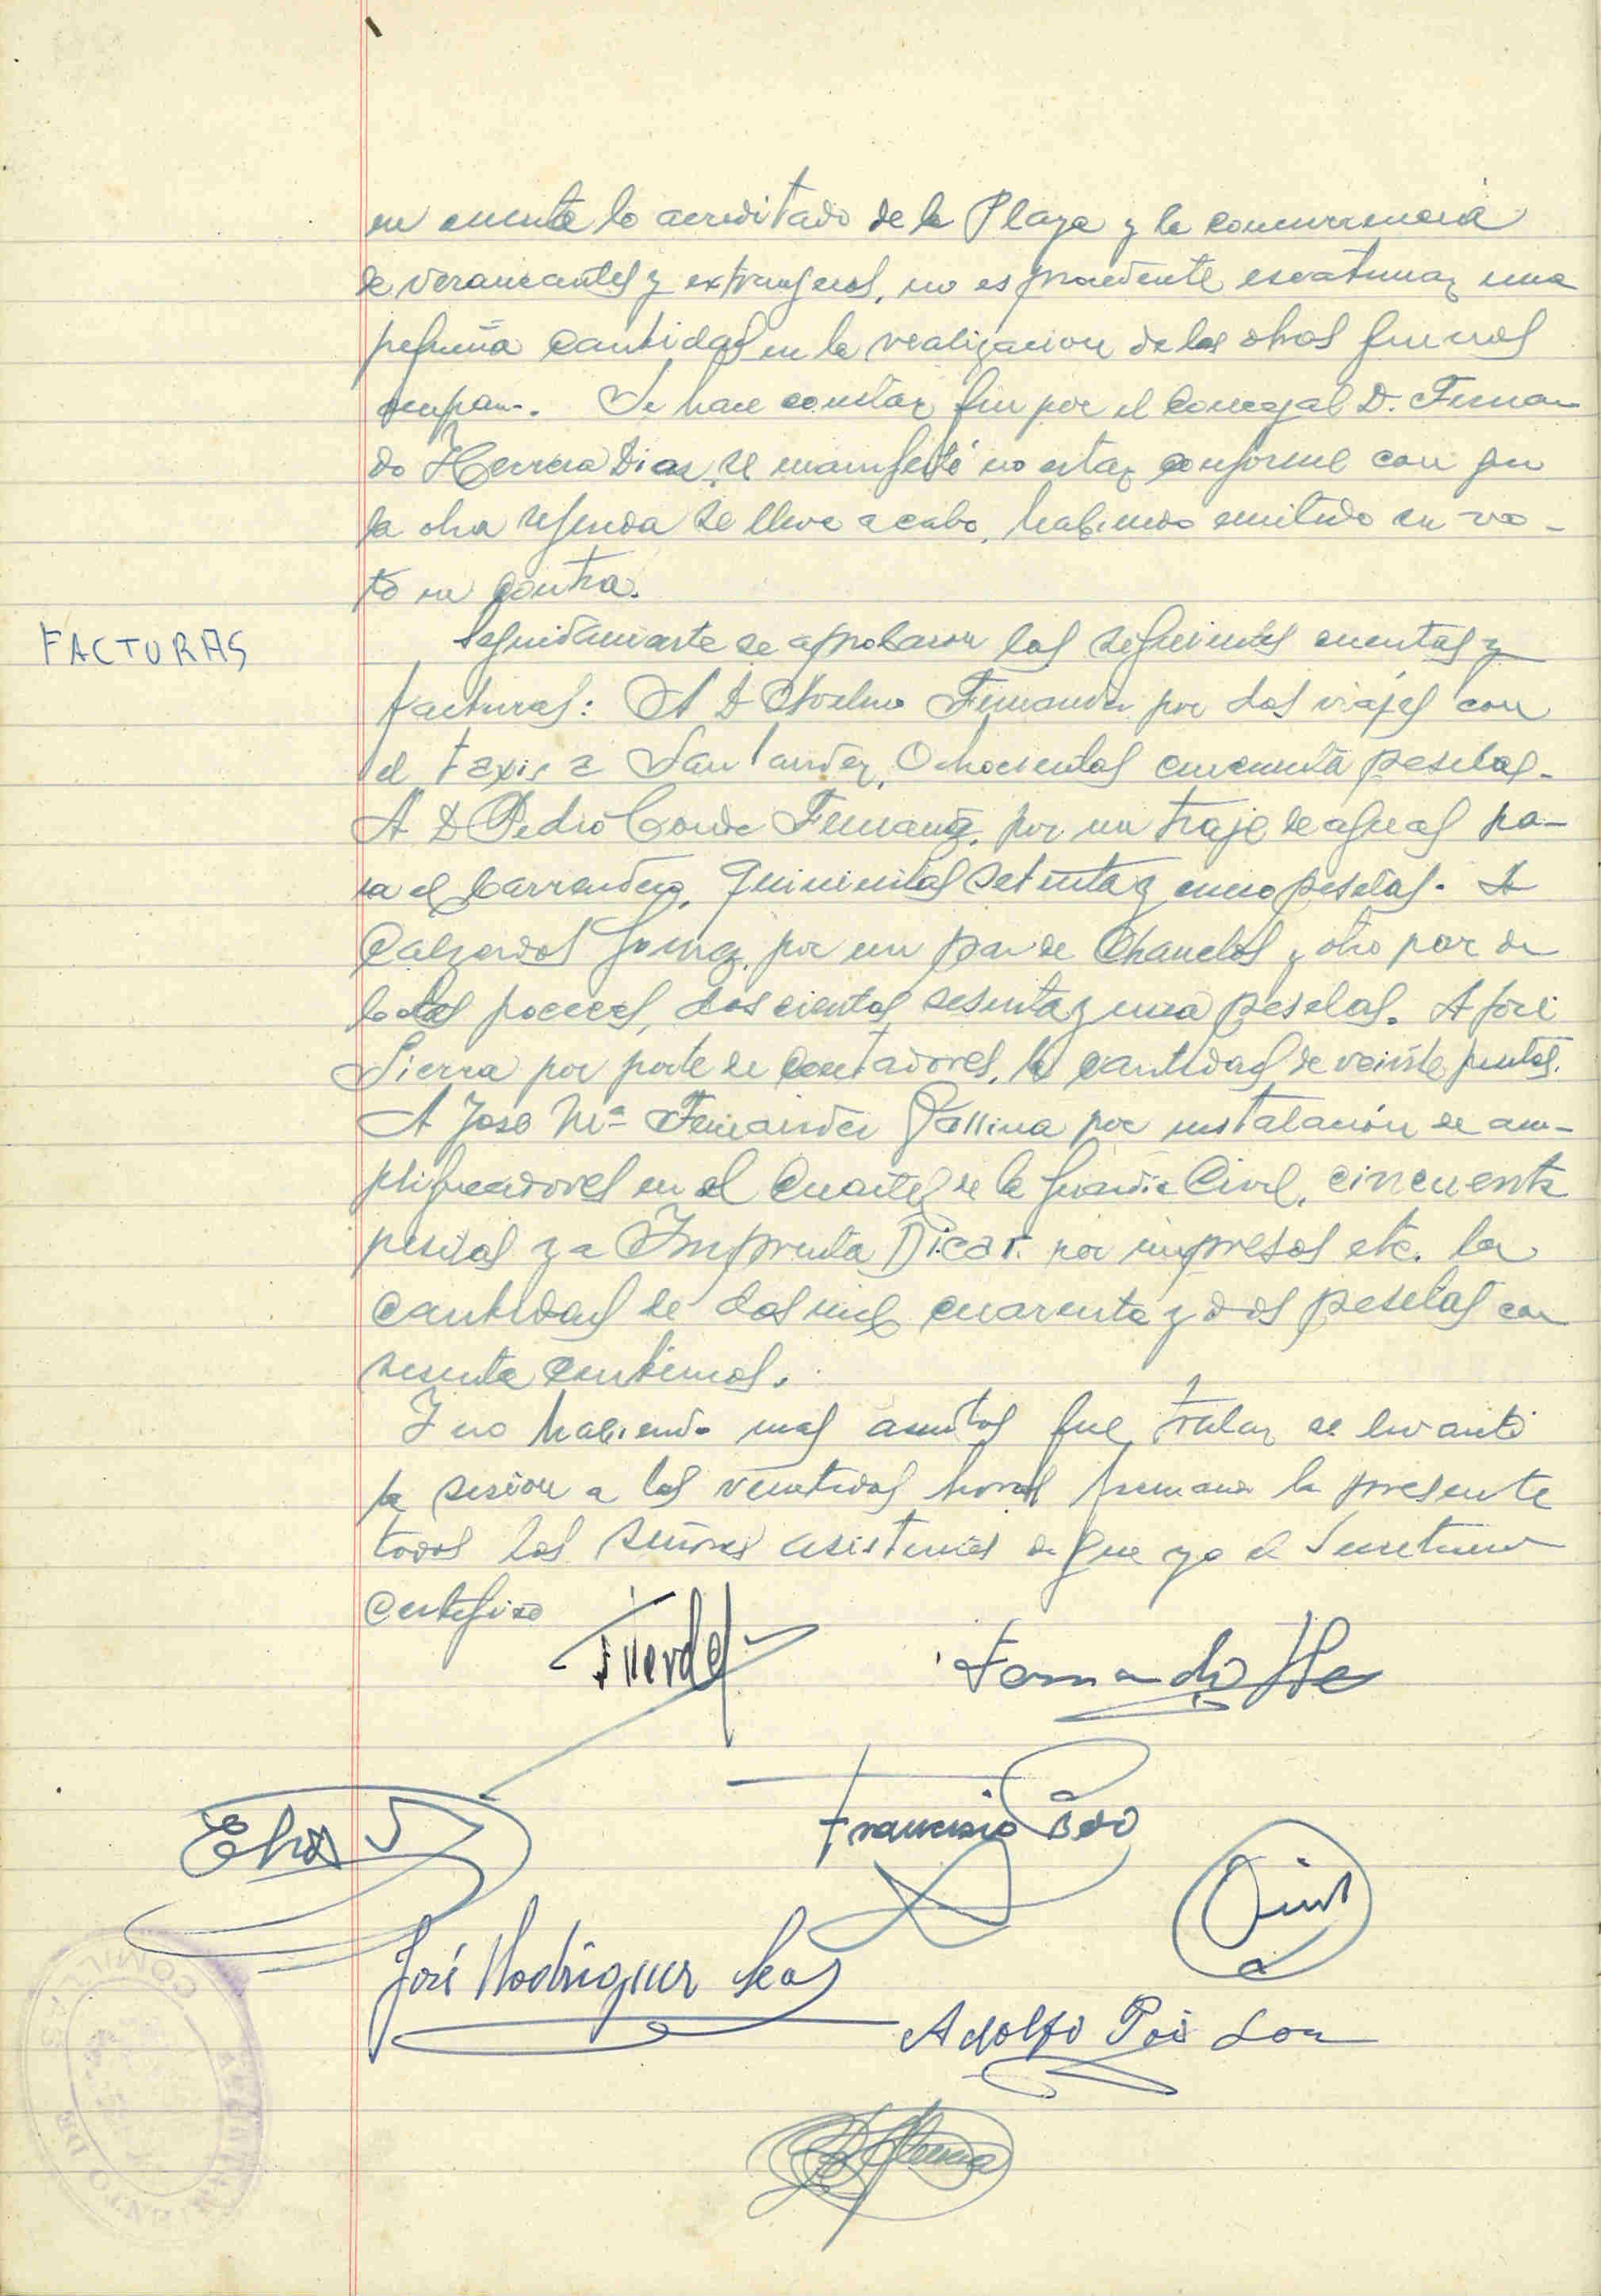 en cuenta lo acreditado de la Playa y la concurrencia
de veraneantes y extranjeros, no es procedente escatimar una
pequeña cantidad en la realizacion de las obras que nos
ocupan. Se hace constar que por el Concejal D. Fernan-
do Herrera Dias, se manifestó no estar conforme con que
la obra referida se lleve a cabo, habiendo emitido su vo-
to en contra.
FACTURAS
Seguidamente se aprobaron las siguientes cuentas y
facturas: A D Avelino Fernandez por dos viajes con
el taxis a Santander, Ochocientas cincuenta pesetas.
A D Pedro Conde Fernandz. por un traje de aguas pa-
ra el barrendero, quinientas setenta y cinco pesetas. A
Calzados Gomez, por un par de Chanclos y otro par de
botas doscientas sesenta y una pesetas. A José
Sierra por porte de Contadores, la cantidad de veinte pesetas.
A José Mª Fernandez Gallina por instalación de am-
plificadores en el Cuartel de la Guardia Civil, cincuenta
pesetas y a Imprenta Dicar. por impresos etc. la
cantidad de dos mil cuarenta y dos pesetas con
sesenta centimos.
Y no habiendo mas asuntos que tratar se levantó
la sesion a las veintidos horas firmando la presente
todos los señores asistentes de que yo el Secretario
Certifico
Fernando He
Francisco
Elias
José Rodriguez
Adolfo
AYUNTAMIENTO DE COMILLAS